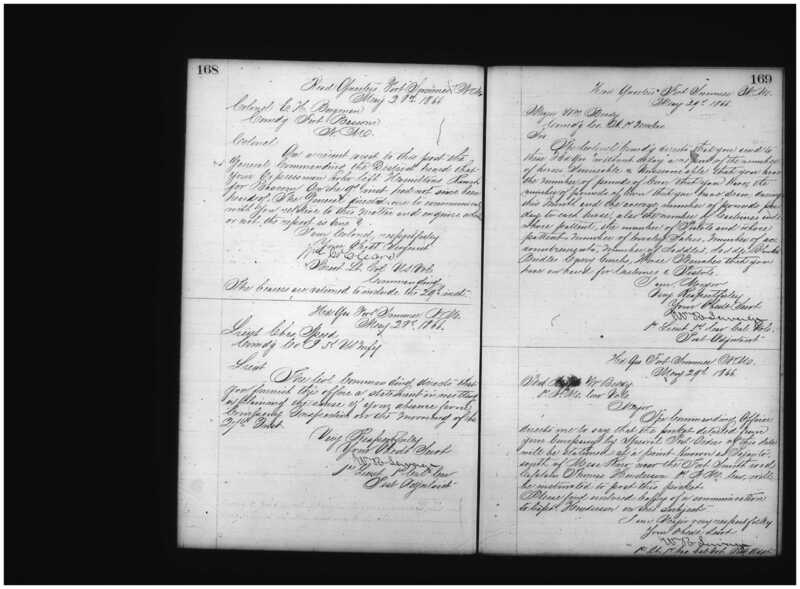 168
Head Quarters Fort Sumner N. M.
May 28th 1866
Colonel E. H. Bergman
Comdg Fort Bascom
N. M.
Colonel
On a recent visit to this post the
General Commanding the District heard that
your Expressman who left Hamiltons Ranch
for Bascom on the 9th inst had not since been
heard of. The General directed me to communicate
with you relative to this matter and enquire whether
or not the report is true?
I am Colonel, respectfully
Your Obdt Servant
Bvt Lt Col U.S. Vols.
Commanding
The are retained to include the inst.
Head Qrs Fort Sumner N. M.
May 29th 1866.
Lieut Chas
Comdg Co 5th US Infy
Lieut.
The Col Commanding directs that
you furnish this office a statement in writing
explaining the cause of your absence from
Company Inspection on the morning of the
27th Inst.
Very Respectfully
Your Obedt Servt
1st Lieut 1st Cav
Post Adjutant
169
Head Quarters Fort Sumner N. M.
May 29th 1866.
Major Wm Brady
Comdg Co 1st
Sir
The Colonel Comdg directs that you send to
this Hd Qrs without delay a of the number
of horses Serviceable & Unserviceable that you have
the number of pounds of Corn that you have, the
number of pounds of that you have drawn during
this Month and the average number of pounds per
day to each horse, also the number of Carbines and
whose patent, the number of Pistols and whose
patent, Number of Cavalry Sabres, Number of
accoutrements, Number of Saddles, Saddle Blankets
Bridles Curry Combs, Horse Brushes that you
have on hand for Carbines & Pistols.
I am Major
Very Respectfully
Your Obedt Servt
1st Lieut 1st Cav Cal Vols.
Post Adjutant
Head Qrs Fort Sumner N. M.
May 29th 1866
Wm Brady
1st N. M. Cav Vols
Major
The Commanding Officer
directs me to say that the picket detailed from
your Company by Special Post Order of this date
will be stationed at a point known as
south of near the Fort Smith road
Captain Thomas Henderson 1st N. M. Cav, will
be instructed to post this picket.
Please find enclosed Copy of a communication
to Capt Henderson on this Subject
I am Major very respectfully
Your Obedt Servt
1st Lt 1st Cav Cal Vol. Post Adjt